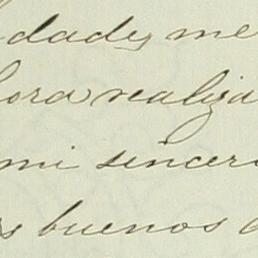 dades me
hora realiza
mi sincero
s buenos